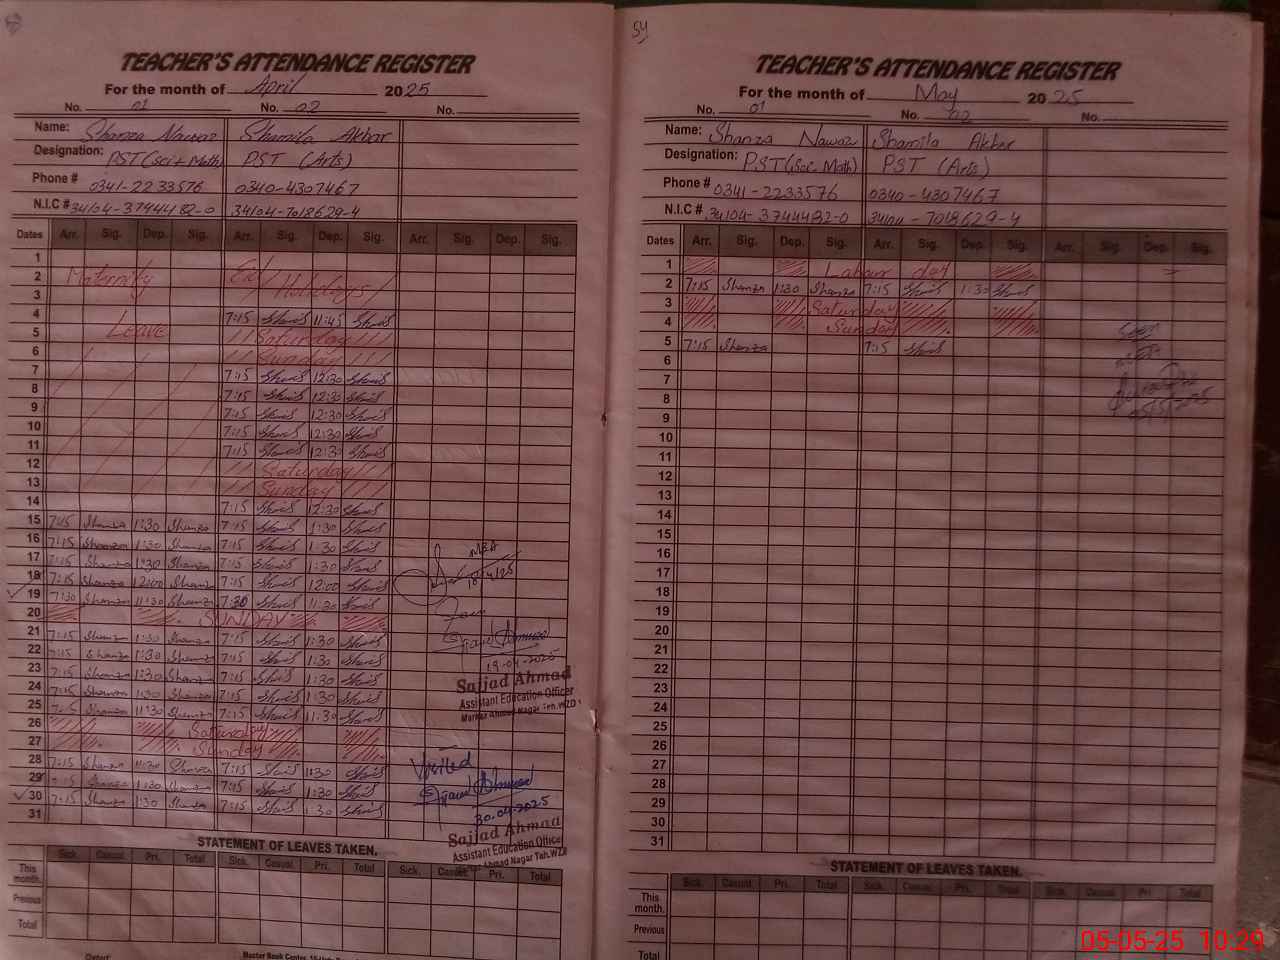 TEACHER'S ATTENDANCE REGISTER
For the month of April 2025
No. 01 No. 02 No.
Name: Shanza Nawaz Shamila Akbar
Designation: PST(Sci+Math) PST (Arts)
Phone # 0341-2233576 0340-4307467
N.I.C # 34104-3744482-0 34104-7018629-4
Dates Arr. Sig. Dep. Sig. Arr. Sig. Dep. Sig. Arr. Sig. Dep. Sig.
1
2 Maternity Eid Holidays
3
4 7:15 11:45
5 Leave Saturday
6 Sunday
7 7:15 12:30
8 7:15 12:30
9 7:15 12:30
10 7:15 12:30
11 7:15 12:30
12 Saturday
13 Sunday
14 7:15 12:30
15 7:15 Shanza 1:30 Shanza 7:15 1:30
16 7:15 Shanza 1:30 Shanza 7:15 1:30
17 7:15 Shanza 1:30 Shanza 7:15 1:30
18 7:15 Shanza 12:00 Shanza 7:15 12:00
19 7:30 Shanza 11:30 Shanza 7:30 11:30
20 SUNDAY
21 7:15 Shanza 1:30 Shanza 7:15 1:30
22 7:15 Shanza 1:30 Shanza 7:15 1:30
23 7:15 Shanza 1:30 Shanza 7:15 1:30
24 7:15 Shanza 1:30 Shanza 7:15 1:30
25 7:15 Shanza 11:30 Shanza 7:15 11:30
26 Saturday
27 Sunday
28 7:15 Shanza 1:30 Shanza 7:15 1:30
29 7:15 Shanza 1:30 Shanza 7:15 1:30
30 7:15 Shanza 1:30 Shanza 7:15 1:30
31
MEA
18/4/25
19-04-2025
Sajjad Ahmad
Assistant Education Officer
Markaz Ahmad Nagar Teh.WZD
Visited
30.04.2025
Sajjad Ahmad
Assistant Education Officer
Ahmad Nagar Teh.WZD
STATEMENT OF LEAVES TAKEN.
Sick. Casual. Pri. Total Sick. Casual. Pri. Total Sick. Casual. Pri. Total
This month.
Previous
Total
54
TEACHER'S ATTENDANCE REGISTER
For the month of May 2025
No. 01 No. 02 No.
Name: Shanza Nawaz Shamila Akber
Designation: PST(Sci Math) PST (Arts)
Phone # 0341-2233576 0340-4307467
N.I.C # 34104-3744482-0 34104-7018629-4
Dates Arr. Sig. Dep. Sig. Arr. Sig. Dep. Sig. Arr. Sig. Dep. Sig.
1 Labour day
2 7:15 Shanza 1:30 Shanza 7:15 1:30
3 Saturday
4 Sunday
5 7:15 Shanza 7:15
6
7
8
9
10
11
12
13
14
15
16
17
18
19
20
21
22
23
24
25
26
27
28
29
30
31
STATEMENT OF LEAVES TAKEN.
Sick. Casual. Pri. Total Sick. Casual. Pri. Total Sick. Casual. Pri. Total
This month.
Previous
Total
05-05-25 10:29